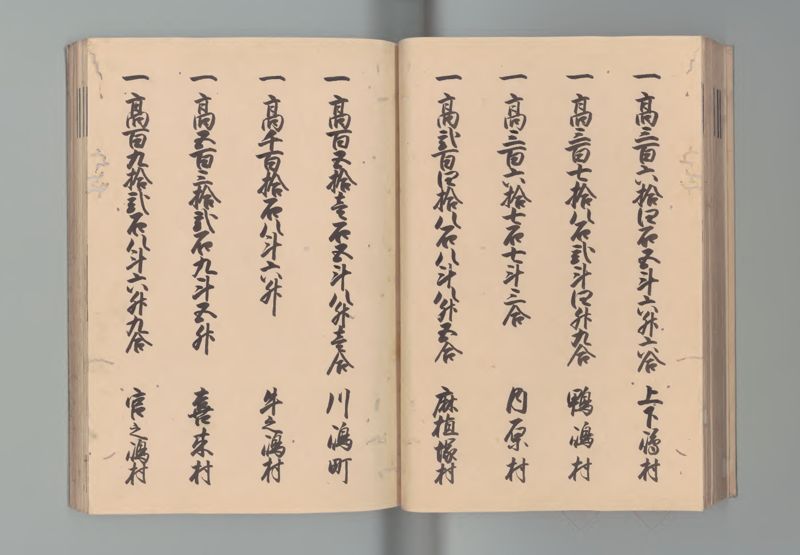 一 高三百六拾四石五斗六升六合 上下嶋村
一 高三百七拾八石弐斗四升九合 鴨嶋村
一 高三百六拾七石七斗三合 内原村
一 高弐百四拾八石八斗八升五合 麻植塚村
一 高百五拾壱石五斗八升壱合 川嶋町
一 高千百拾石八斗六升 牛之嶋村
一 高五百三拾弐石九斗五升 喜来村
一 高百九拾弐石八斗六升九合 宮之嶋村